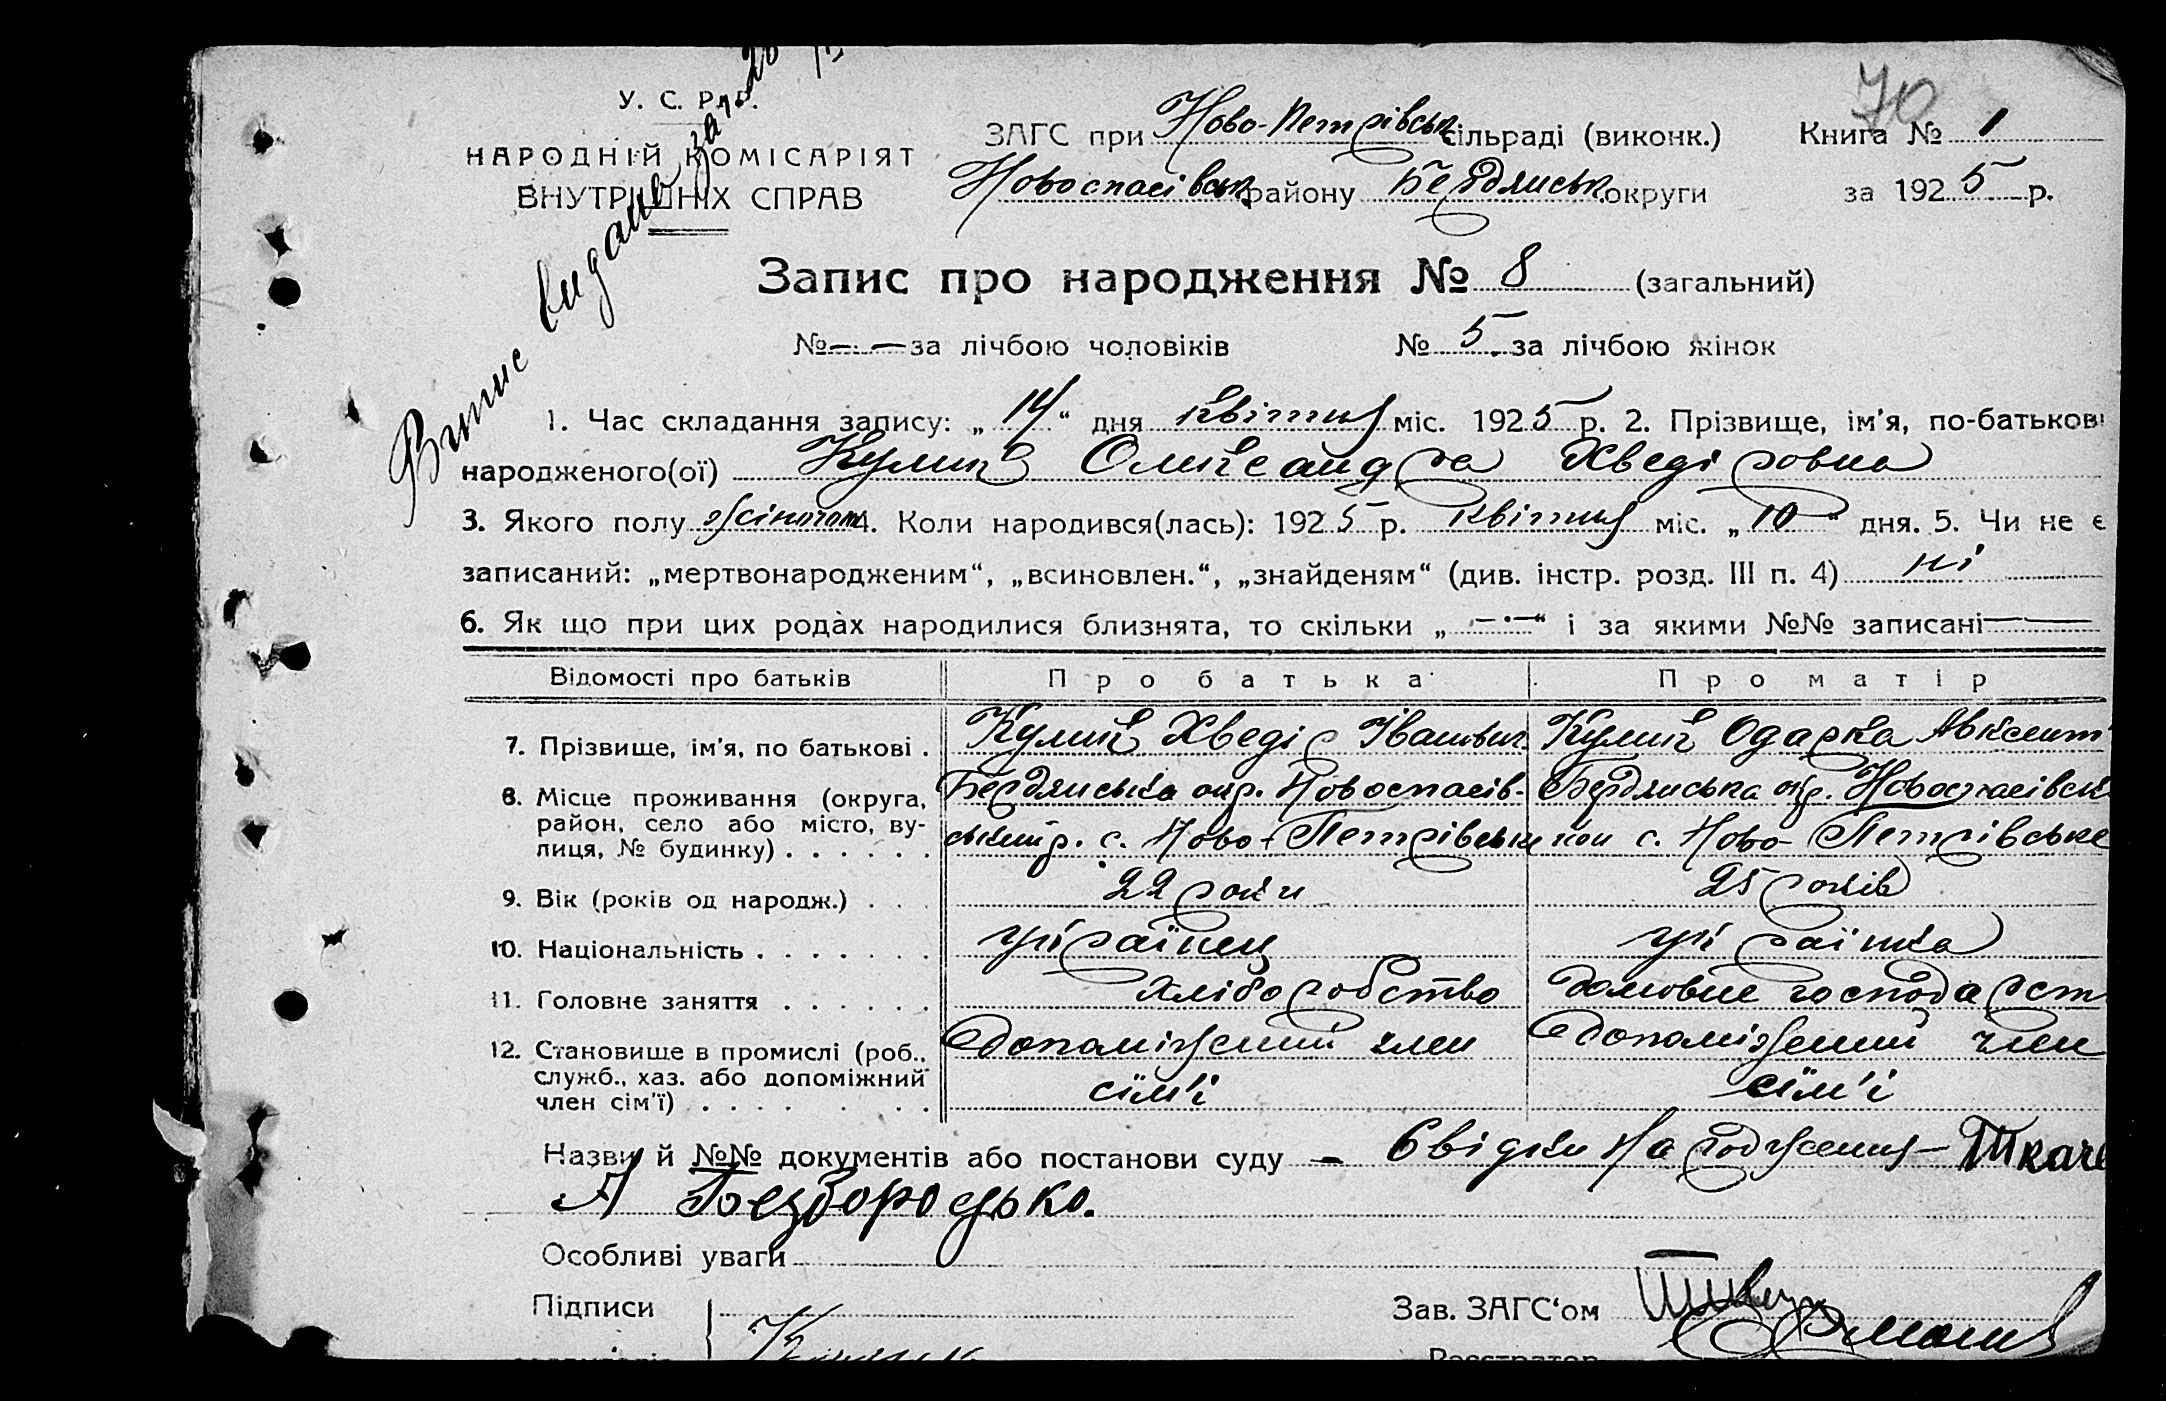 70
У. С. Р. Р.
НАРОДНІЙ КОМІСАРІЯТ
ВНУТРІШНІХ СПРАВ
Витис видано
ЗАГС при Ново-Петрівськ сільраді (виконк.) Книга № 1
Новоспасівськ. району Бердянськ. округи за 1925 р.
Запис про народження № 8 (загальний)
№ — за лічбою чоловіків № 5 за лічбою жінок
1. Час складання запису: „14“ дня квітня міс. 1925 р. 2. Прізвище, ім'я, по-батькові
народженого(ої) Кулик Олександра Хведіровна
3. Якого полу жіночого 4. Коли народився(лась): 1925 р. квітня міс. „10“ дня. 5. Чи не є
записаний: „мертвонародженим“, „всиновлен.“, „знайденям“ (див. інстр. розд. III п. 4) ні
6. Як що при цих родах народилися близнята, то скільки „—·—“ і за якими №№ записані —
Відомості про батьків Про батька Про матір
7. Прізвище, ім'я, по батькові . Кулик Хведір Іванович Кулик Одарка Авксент
8. Місце проживання (округа, Бердянська окр. Новоспасів- Бердянська окр. Новоспасівськ
район, село або місто, ву-
лиця, № будинку) . . . . . . ський р. с. Ново-Петрівське кои с. Ново-Петрівське
9. Вік (років од народж.) . . . 22 роки 25 років
10. Національність . . . . . . . українец українка
11. Головне заняття . . . . . . хліборобство домовне господарст
12. Становище в промислі (роб., допоміжений член допоміжений член
служб., хаз. або допоміжний
член сім'ї) . . . . . . . . сїм'і сїм'і
Назви й №№ документів або постанови суду — Свідки Народження — Ткаче
А Безбородько.
Особливі уваги
Підписи Зав. ЗАГС'ом
Кулик
Реєстратор